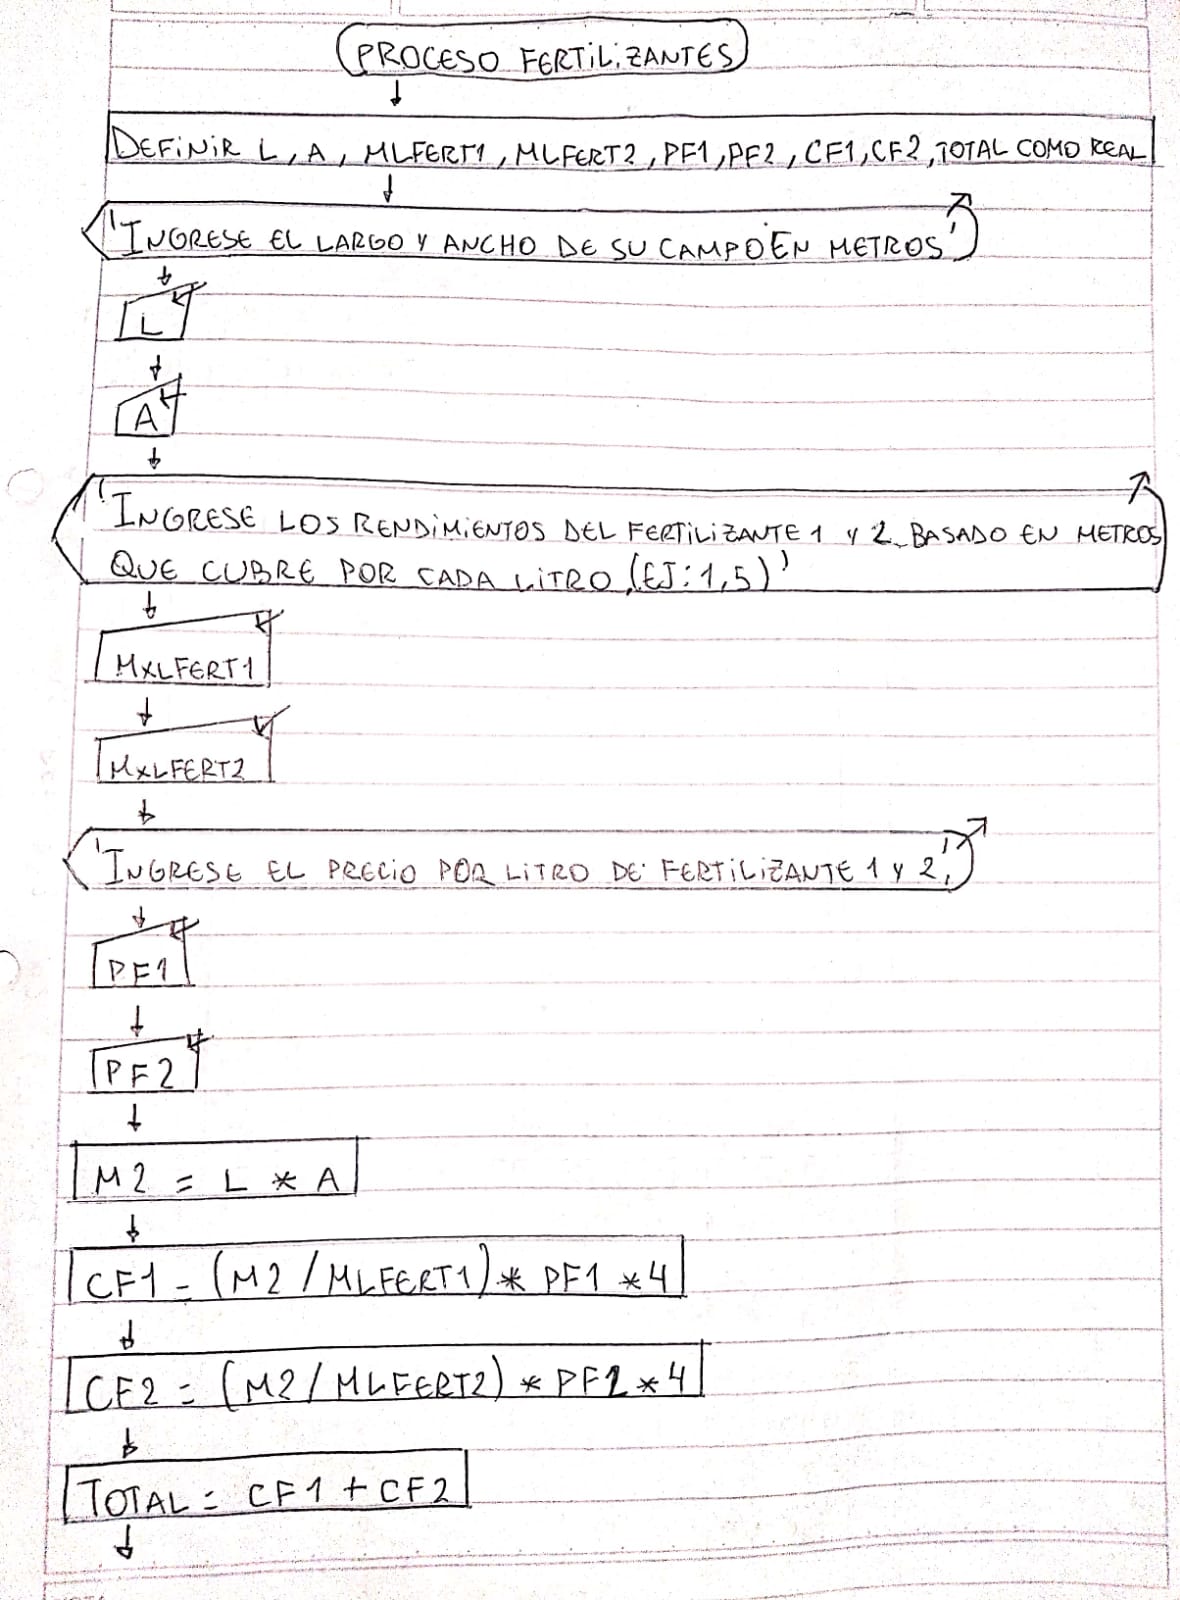 PROCESO FERTILIZANTES
DEFINIR L, A, MLFERT1, MLFERT2, PF1, PF2, CF1, CF2, TOTAL COMO REAL
'INGRESE EL LARGO Y ANCHO DE SU CAMPO EN METROS'
L
A
'INGRESE LOS RENDIMIENTOS DEL FERTILIZANTE 1 Y 2 BASADO EN METROS
QUE CUBRE POR CADA LITRO (EJ: 1,5)'
MXLFERT1
MXLFERT2
'INGRESE EL PRECIO POR LITRO DE FERTILIZANTE 1 Y 2'
PF1
PF2
M2 = L * A
CF1 = (M2 / MLFERT1) * PF1 * 4
CF2 = (M2 / MLFERT2) * PF2 * 4
TOTAL = CF1 + CF2